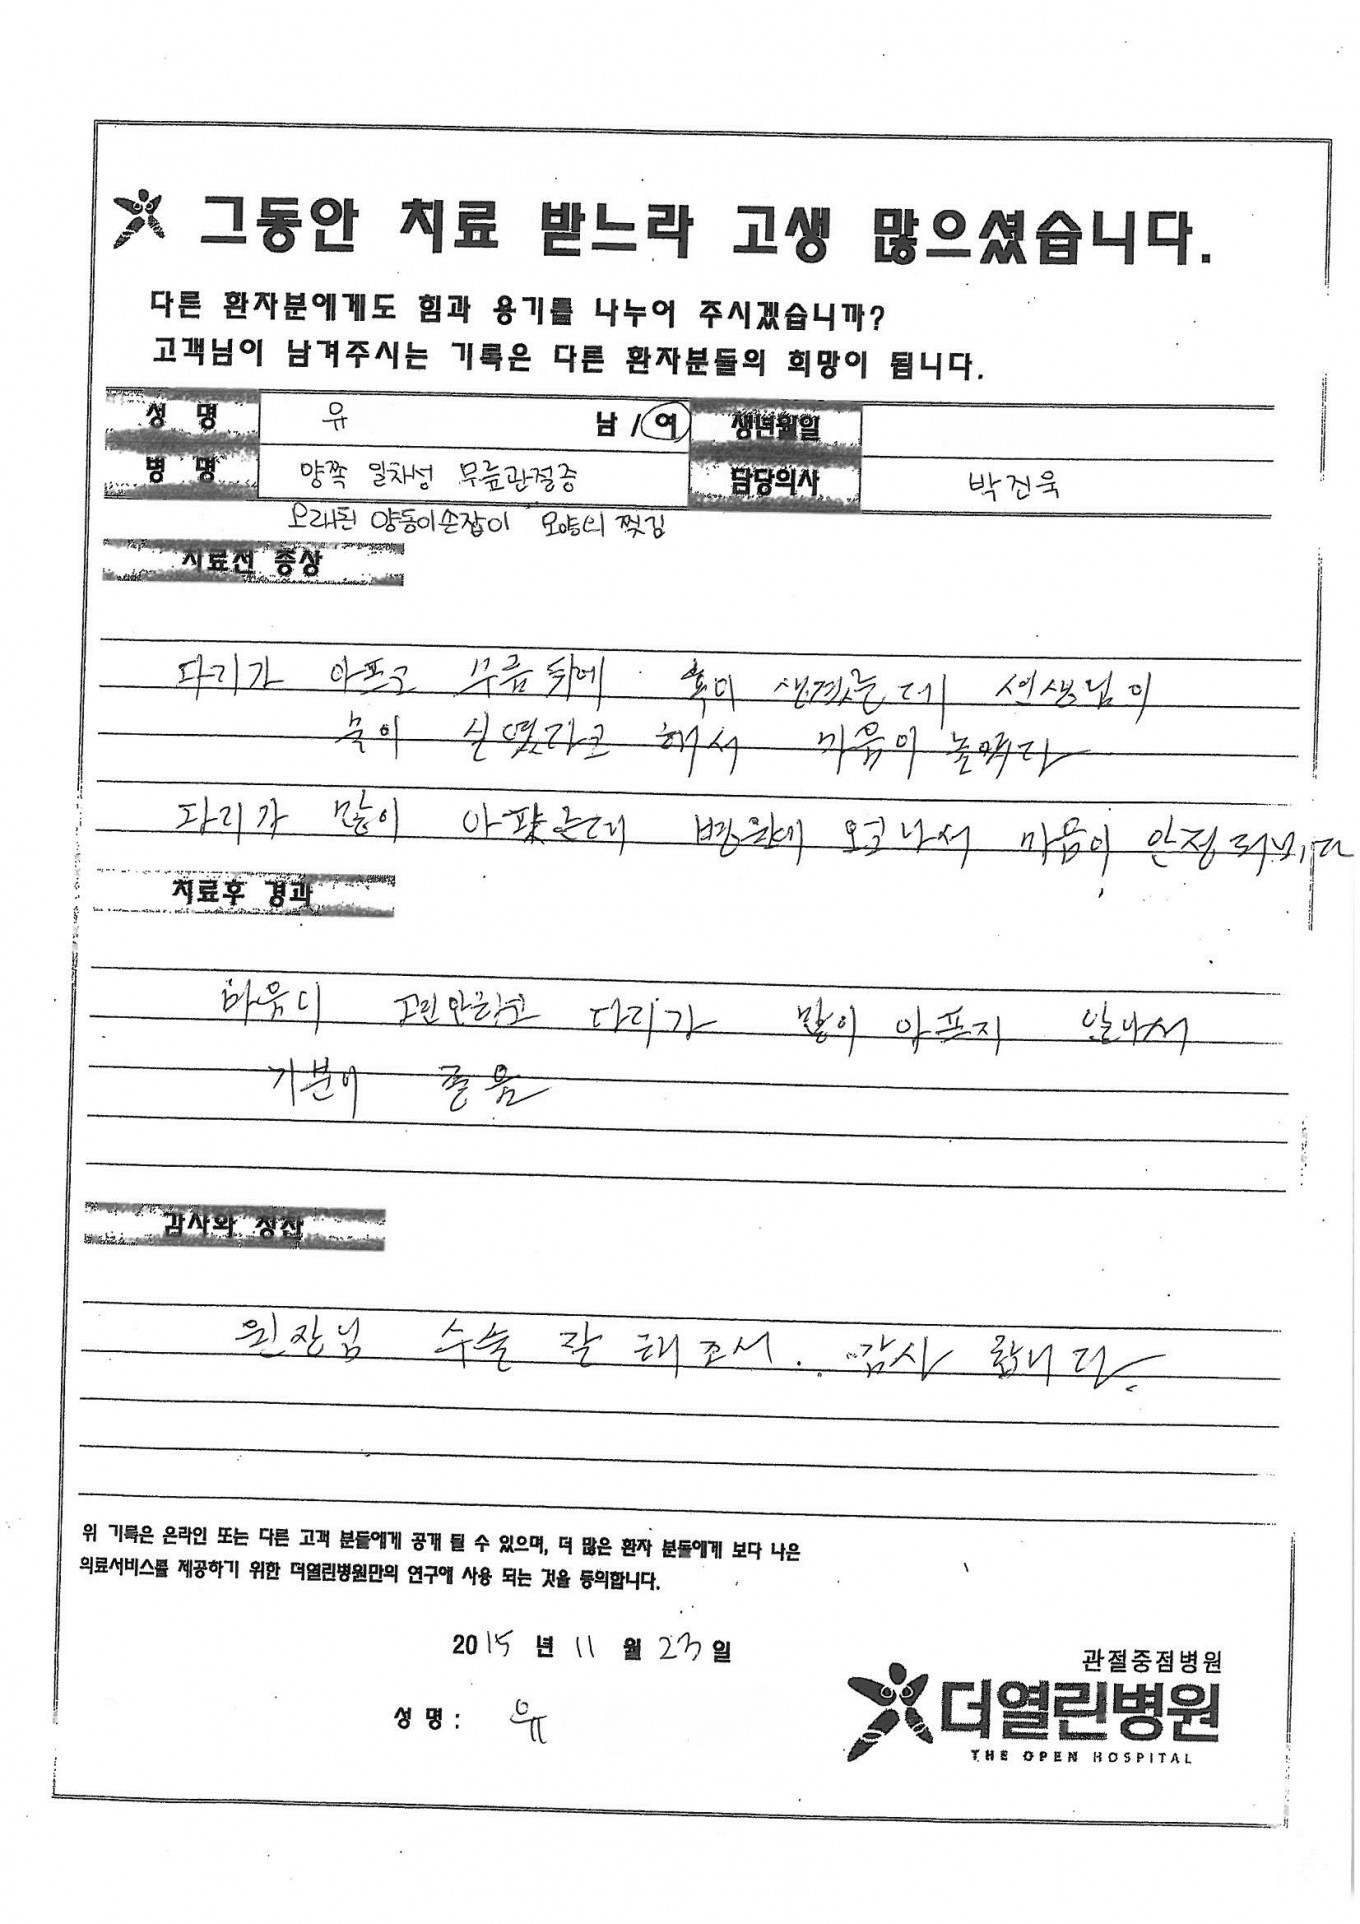 그동안 치료 받느라 고생 많으셨습니다.
다른 환자분에게도 힘과 용기를 나누어 주시겠습니까?
고객님이 남겨주시는 기록은 다른 환자분들의 희망이 됩니다.
성 명 유 남 / 여 생년월일
병 명 양쪽 일차성 무릎관절증 담당의사 박진욱
오래된 양동이손잡이 모양의 찢김
치료전 증상
다리가 아프고 무릎 뒤에 혹이 생겼는데 선생님이
물이 실렸다고 해서 마음이 놓였다
다리가 많이 아팠는데 병원에 오고나서 마음이 안정
치료후 경과
마음이 다리가 많이 아프지 안나서
기분이 좋음
감사와 칭찬
원장님 수술 잘 해조서. 감사 합니다.
위 기록은 온라인 또는 다른 고객 분들에게 공개 될 수 있으며, 더 많은 환자 분들에게 보다 나은
의료서비스를 제공하기 위한 더열린병원만의 연구에 사용 되는 것을 동의합니다.
2015 년 11 월 23 일
성 명 : 유
관절중점병원
더열린병원
THE OPEN HOSPITAL